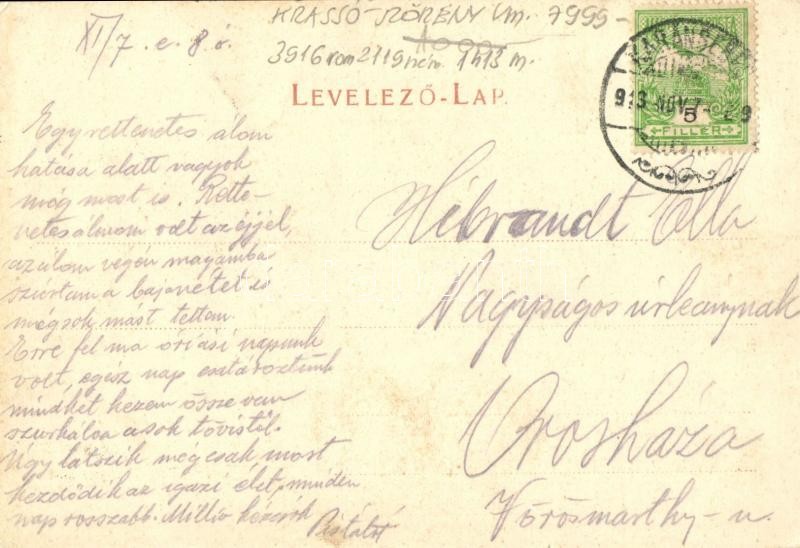 XI/7. e. 8 ó.
KRASSÓ-SZÖRÉNY Vm. 7999-
3916 rom 2119 ném 1413 m.
LEVELEZŐ-LAP.
KARÁNSEBES
913 NOV. 7
5
FILLER
Egy rettenetes álom
hatása alatt vagyok
még most is. Rette-
netes álmom volt az éjjel,
az álom végén magamba
szúrtam a bajonétet és
még sok mást tettem
Erre fel ma óriási napunk
volt, egész nap csatároztunk
mindkét kezem össze van
szurkálva a sok tövistől.
Úgy látszik még csak most
kezdődik az igazi élet, minden
nap rosszabb. Millió kézcsók
Pistától
Hibrandt Ella
Nagyságos úrleánynak
Orosháza
Vörösmarthy-u.